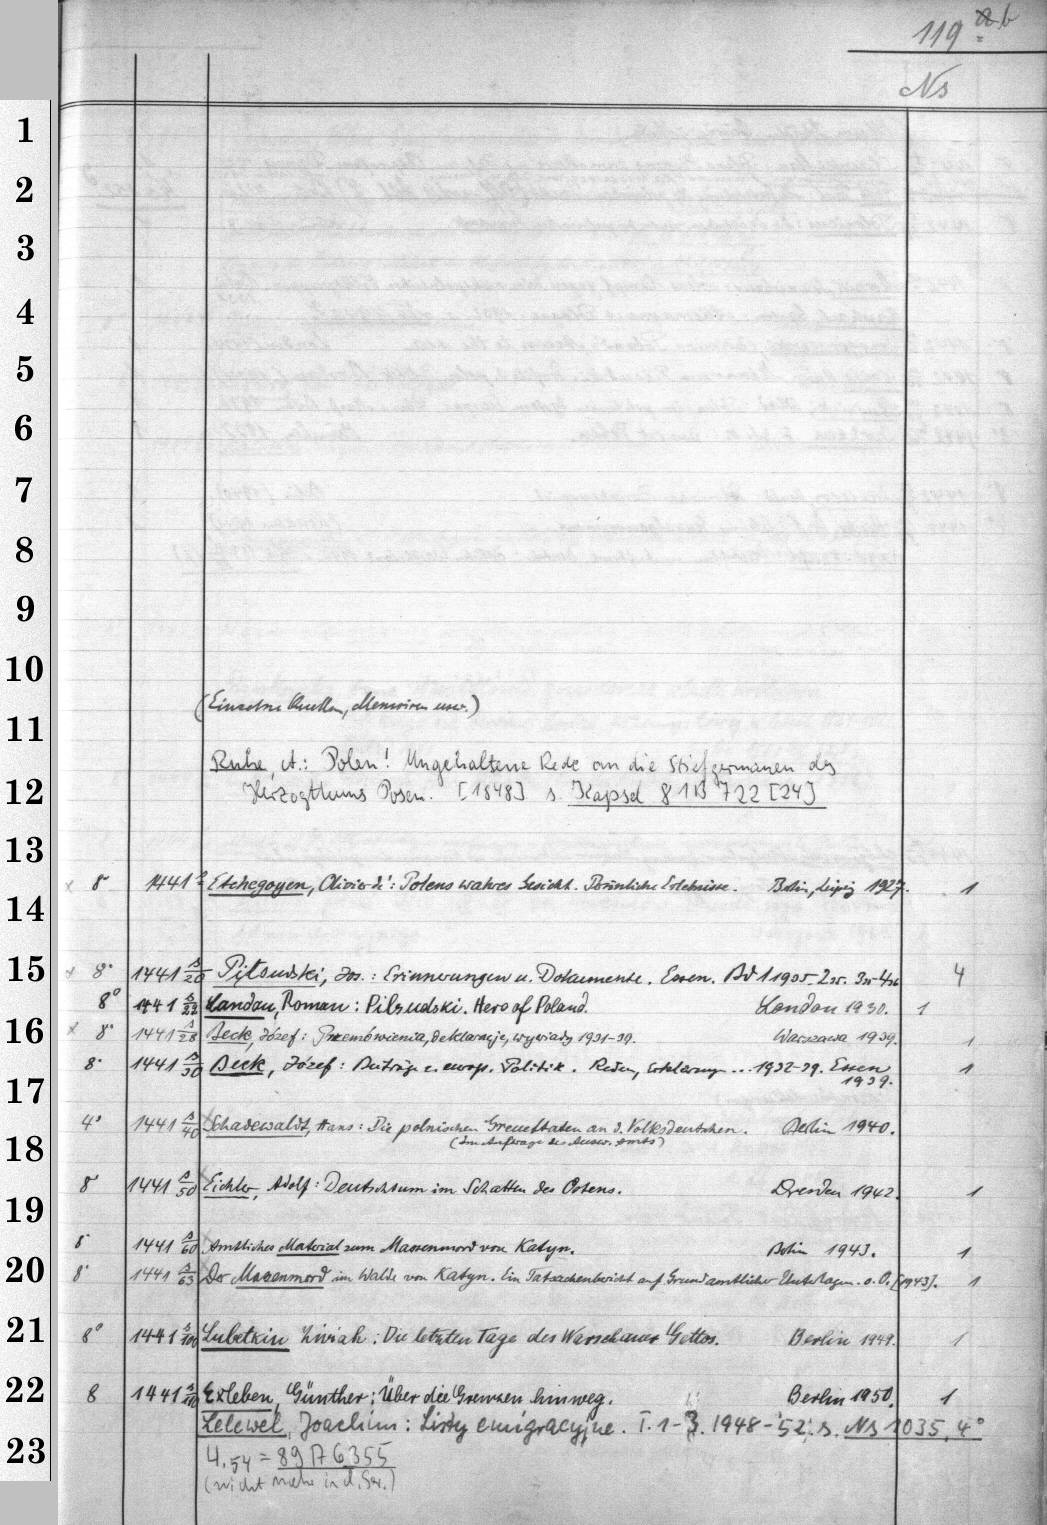 119 b
Ns
1
2
3
4
5
6
7
8
9
10
(Einzelne Quellen, Memoiren usw.)
11
Ruhe, A.: Polen! Ungehaltene Rede an die Stiefgermanen des
12
Herzogthums Posen. [1848] s. Kapsel 81B 722 [24]
13
8° 1441 Etchegoyen, Olivier d': Polens wahres Gesicht. Persönliche Erlebnisse. Berlin, Leipzig 1927. 1
14
15
x 8° 1441 s/20 Piłsudski, Jos.: Erinnerungen u. Dokumente. Essen. Bd 1 1935- 4
8° 1441 s/22 Landau, Roman: Pilsudski. Hero of Poland. London 1930. 1
16
x 8° 1441 s/28 Beck, Józef: Przemówienia, deklaracje, wywiady 1931-39. Warszawa 1939. 1
8° 1441 s/30 Beck, Józef: Beiträge z. europ. Politik. Reden, Erklärungen ... 1932-39. Essen 1
1939.
17
4° 1441 s/40 Schadewaldt, Hans: Die polnischen Greueltaten an d. Volksdeutschen. Berlin 1940.
18
(Im Auftrage des Ausw. Amts)
8° 1441 s/50 Eichler, Adolf: Deutschtum im Schatten des Ostens. Dresden 1942. 1
19
8° 1441 s/60 Amtliches Material zum Massenmord von Katyn. Berlin 1943. 1
20
8° 1441 s/63 Der Massenmord im Walde von Katyn. Ein Tatsachenbericht auf Grund amtlicher Unterlagen. o. O. [1943]. 1
21
8° 1441 s/100 Lubetkin Ziviah: Die letzten Tage des Warschauer Gettos. Berlin 1949. 1
22
8 1441 s/110 Erxleben, Günther: Über die Grenzen hinweg. Berlin 1950. 1
Lelewel, Joachim: Listy emigracyjne. T. 1-3. 1948-'52. s. Ns 1035, 4°
23
4.54 = 89 A 6355
(nicht mehr in d. )